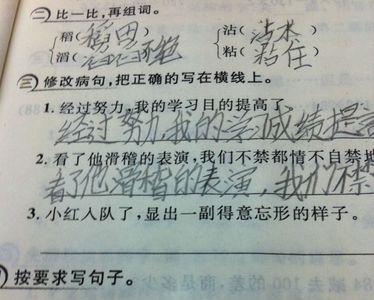 ㊁比一比,再组词。
稻( 沾(沾水)
滔(滔滔不绝) 粘(粘住)
㊂修改病句,把正确的写在横线上。
1. 经过努力,我的学习目的提高了
经过努力,我的学习成绩提高
2. 看了他滑稽的表演,我们不禁都情不自禁地
看了他滑稽的表演,我们不禁
3. 小红入队了,显出一副得意忘形的样子。
按要求写句子。